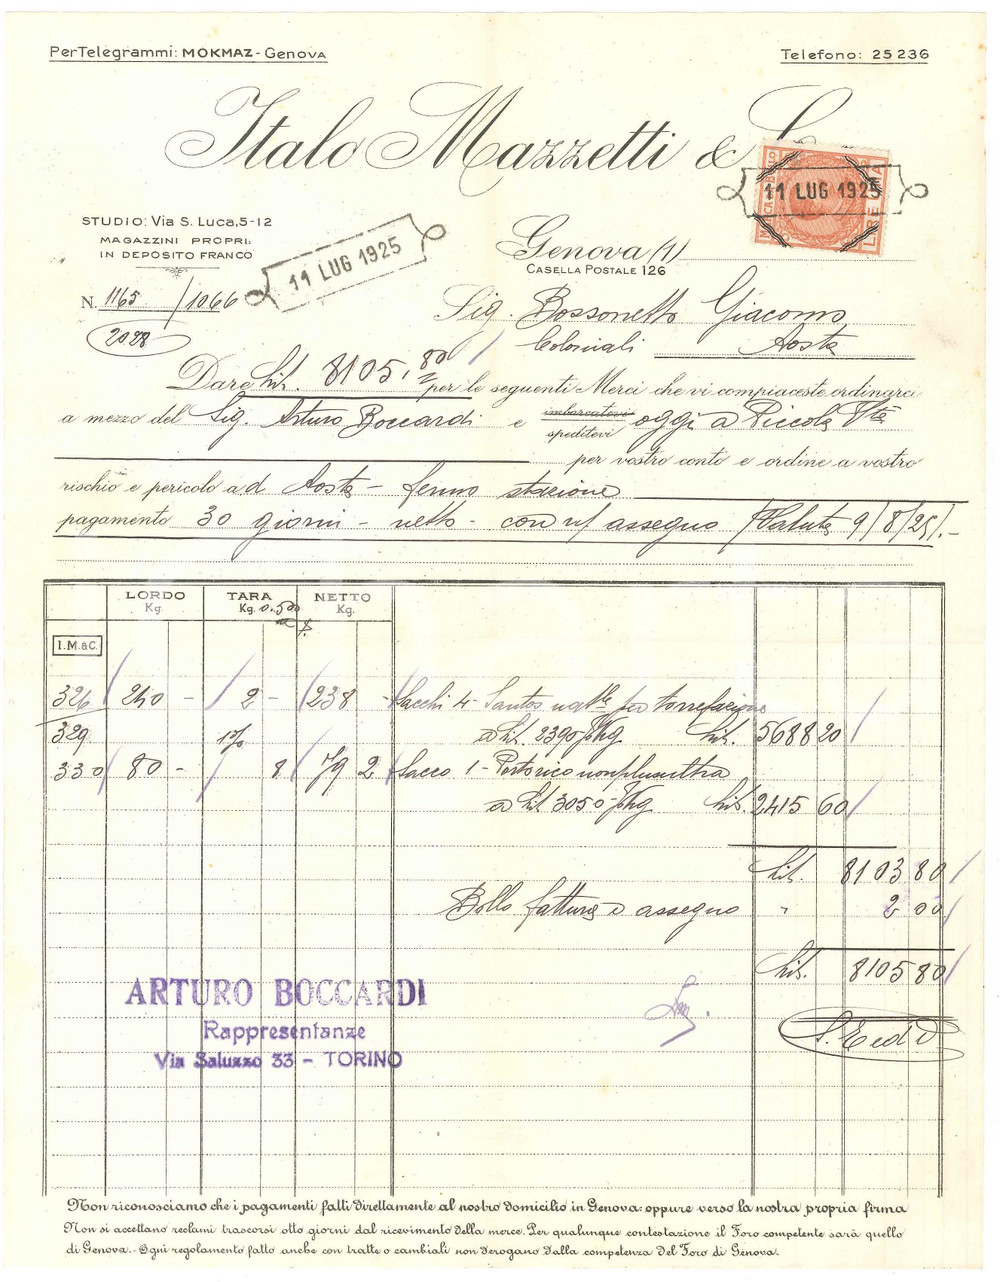 Per Telegrammi: MOKMAZ - Genova
Telefono: 25236
Italo Mazzetti & C
MARCA DA BOLLO
LIRE UNA
11 LUG 1925
STUDIO: Via S. Luca, 5-12
MAGAZZINI PROPRI:
IN DEPOSITO FRANCO
11 LUG 1925
Genova (1)
CASELLA POSTALE 126
N. 1165/1066
2098
Sig. Bossonetto Giacomo
Coloniali Aosta
Dare Lit. 8105,80 per le seguenti Merci che vi compiaceste ordinarci
a mezzo del Sig. Arturo Boccardi e imbarcatovi speditovi oggi a Piccola Vtà
per vostro conto e ordine a vostro
rischio e pericolo ad Aosta - fermo stazione
pagamento 30 giorni - netto - con n/ assegno Valuta 9/8/25/.-
LORDO Kg. TARA Kg. 0.500 NETTO Kg.
I.M.&C.
326 240 - 2 - 238 - Sacchi 4 - Santos natle per torrefazione
329 a Lit. 2390 %Kg Lit. 5688 20
1%
330 80 - 8 79 2 Sacco 1 - Portorico nonplusultra
a Lit 3050 %Kg Lit. 2415 60
Lit. 8103 80
Bollo fattura e assegno " 2 00
Lit. 8105 80
S. E. e d O
ARTURO BOCCARDI
Rappresentanze
Via Saluzzo 33 - TORINO
Non riconosciamo che i pagamenti fatti direttamente al nostro domicilio in Genova: oppure verso la nostra propria firma
Non si accettano reclami trascorsi otto giorni dal ricevimento della merce. Per qualunque contestazione il Foro competente sarà quello
di Genova. - Ogni regolamento fatto anche con tratte o cambiali non derogano dalla competenza del Foro di Genova.